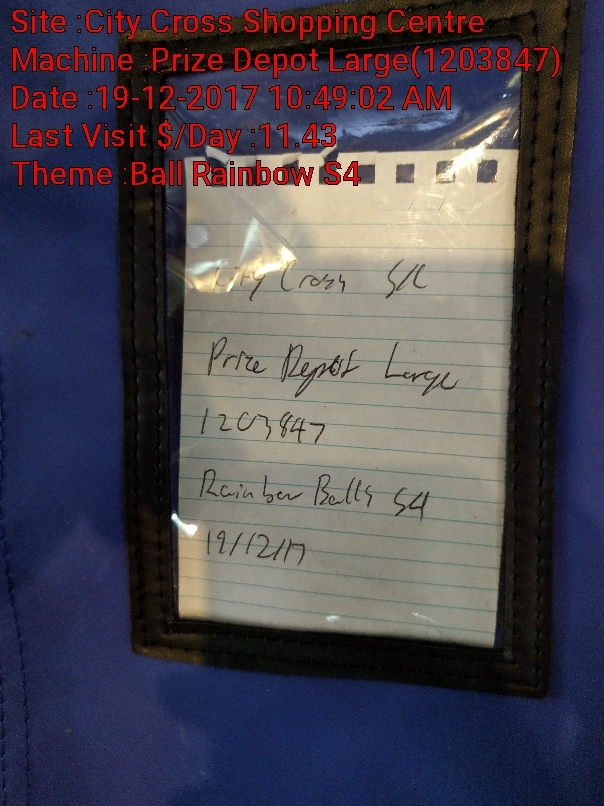 Site :City Cross Shopping Centre
Machine :Prize Depot Large(1203847)
Date :19-12-2017 10:49:02 AM
Last Visit $/Day :11.43
Theme :Ball Rainbow S4
City Cross S/C
Prize Depot Large
1203847
Rainbow Balls S4
19/12/17